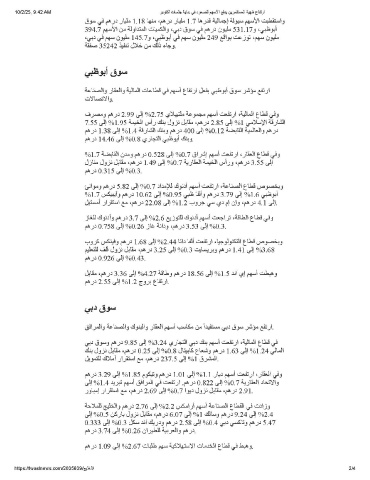 10/2/25, 9:42 AM
ارتفاع شهية المستثمرين يدفع الأسهم للصعود في بداية جلسات أكتوبر
واستقطبت الأسهم سيولة إجمالية قدرها 1.7 مليار درهم، منها 1.18 مليار درهم في سوق
أبوظبي، و531.17 مليون درهم في سوق دبي، والكميات المتداولة من الأسهم 394.7
مليون سهم، توزعت بواقع 249 مليون سهم في أبوظبي، و145.7 مليون سهم في دبي،
وجاء ذلك من خلال تنفيذ 34245 صفقة.
سوق أبوظبي
ارتفع مؤشر سوق أبوظبي بفعل ارتفاع أسهم في قطاعات المالية والعقار والصناعة
والاتصالات.
وفي قطاع المالية، ارتفعت أسهم مجموعة ملتيبلاي 2.75% إلى 2.99 درهم ومصرف
الشارقة الإسلامي 1% إلى 2.85 درهم، مقابل نزول بنك رأس الخيمة 1.95% إلى 7.55
درهم والعالمية القابضة 0.12% إلى 400 درهم وبنك الشارقة 1.4% إلى 1.38 درهم
وبنك أبوظبي التجاري 0.8% إلى 14.46 درهم.
وفي قطاع العقار، ارتفعت أسهم إشراق 0.7% إلى 0.528 درهم ومدن القابضة 1.7%
إلى 3.55 درهم، ورأس الخيمة العقارية 0.7% إلى 1.49 درهم، مقابل نزول منازل
0.3% إلى 0.315 درهم.
وبخصوص قطاع الصناعة، ارتفعت أسهم أدنوك للإمداد 0.7% إلى 5.82 درهم وموانئ
أبوظبي 1.6% إلى 3.79 درهم وألفا ظبي 0.95% إلى 10.62 درهم وأبيكس 1.7%
إلى 4.1 درهم، وإن إم دي سي جروب 1.2% إلى 22.08 درهم، مع استقرار أمستيل.
وفي قطاع الطاقة، تراجعت أسهم أدنوك للتوزيع 2.6% إلى 3.7 درهم وأدنوك للغاز
0.3% إلى 3.53 درهم، ودانة غاز 0.26% إلى 0.758 درهم.
وبخصوص قطاع التكنولوجيا، ارتفعت ألف داتا 2.44% إلى 1.68 درهم وفينكس كروب
3.68% إلى 1.41 درهم وبريسايت 0.3% إلى 3.25 درهم، مقابل نزول ألف للتعليم
0.43% إلى 0.926 درهم.
وهبطت أسهم إي اند 1.5% إلى 18.56 درهم وطاقة 4.27% إلى 3.36 درهم، مقابل
ارتفاع بروج 1.2% إلى 2.55 درهم.
سوق دبي
ارتفع مؤشر سوق دبي مستفيداً من مكاسب أسهم العقار والبنوك والصناعة والمرافق.
في قطاع المالية، ارتفعت أسهم بنك دبي التجاري 3.24% إلى 9.85 درهم وسوق دبي
المالي 1.24% إلى 1.63 درهم وشعاع كابيتال 0.8% إلى 0.25 درهم، مقابل نزول بنك
المشرق 1% إلى 237.5 درهم، مع استقرار أملاك للتمويل.
وفي العقار، ارتفعت أسهم ديار 1.1% إلى 1.01 درهم وتيكوم 1.85% إلى 3.29 درهم
والاتحاد العقارية 0.7% إلى 0.822 درهم. ارتفعت في المرافق أسهم تبريد 1.4% إلى
2.91 درهم، مقابل نزول ديوا 0.7% إلى 2.69 درهم، مع استقرار إمباور.
وزادت في القطاع الصناعة أسهم أرامكس 2.2% إلى 2.76 درهم والخليج للملاحة
2.4% إلى 9.24 درهم وسالك 1% إلى 6.07 درهم، مقابل نزول باركن 0.5% إلى
5.47 درهم وتاكسي دبي 0.4% إلى 2.58 درهم ودريك اند سكل 0.3% إلى 0.333
درهم والعربية للطيران 0.26% إلى 3.74 درهم.
وهبط في قطاع الخدمات الاستهلاكية سهم طلبات 2.67% إلى 1.09 درهم.
2/4